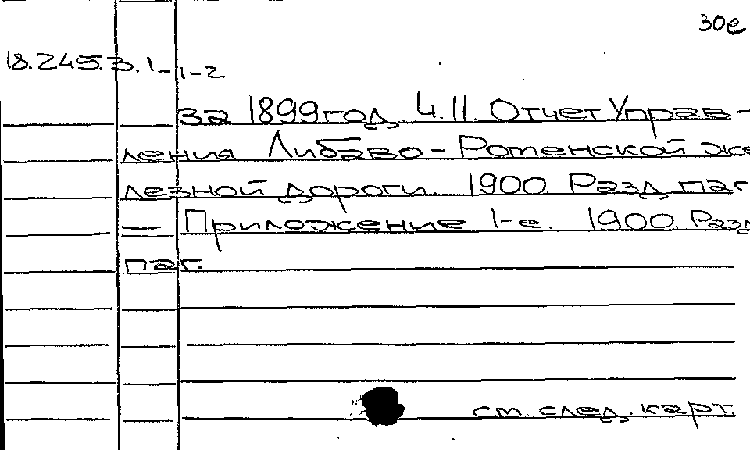 30е
18.245.3.1-1-2
за 1899 год. Ч.II. Отчет Управ-
ления Либаво-Роменской же
лезной дороги. 1900. Разд. паг.
— Приложение 1-е. 1900. Разд
паг.
см. след. карт.